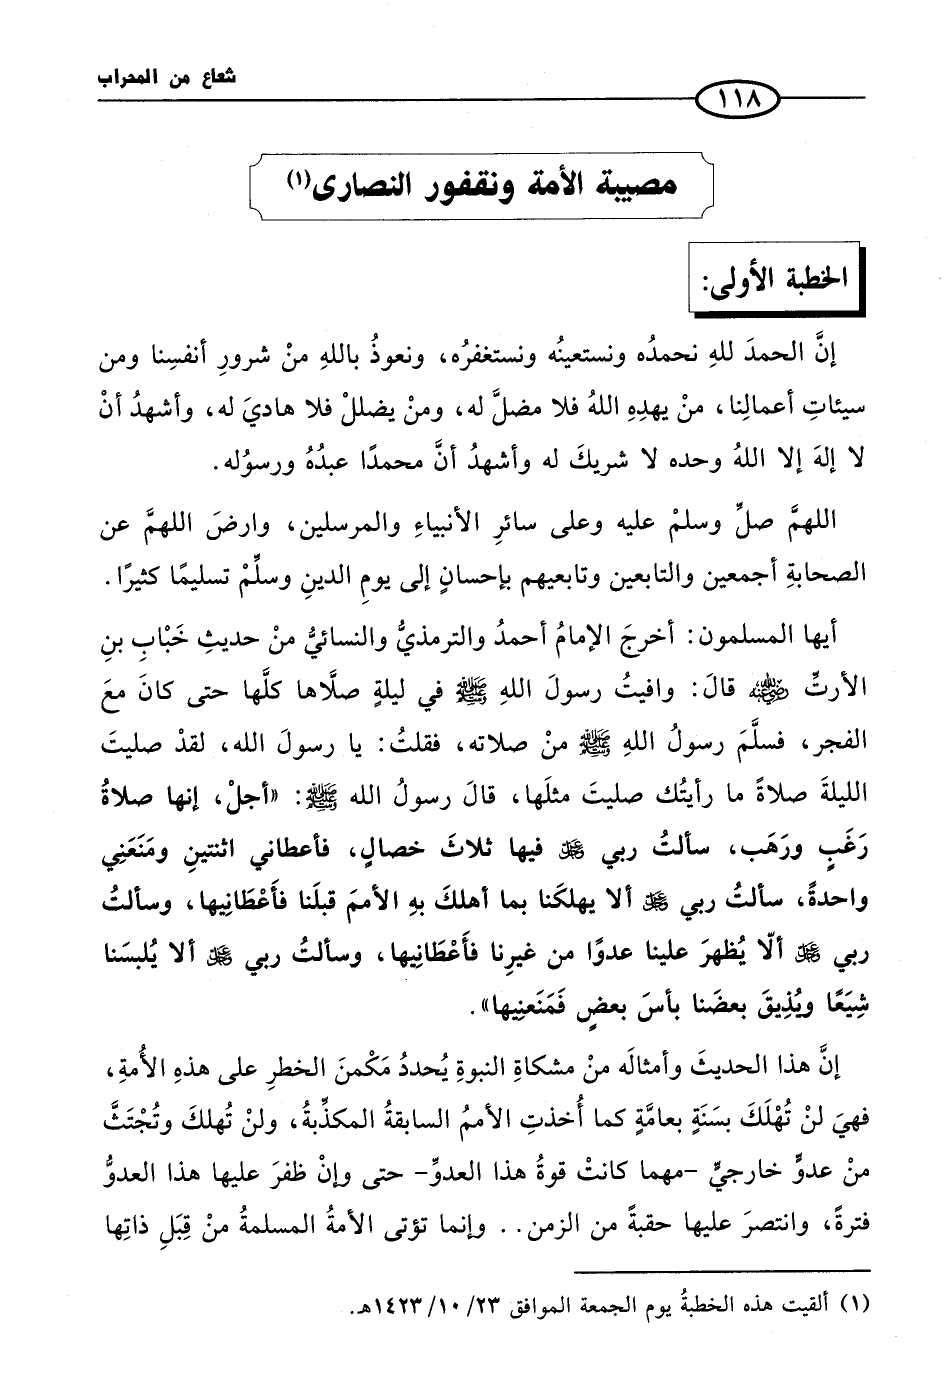 شعاع من المحراب
١١٨
مصيبة الأمة ونقفور النصارى(١)
الخطبة الأولى:
إنَّ الحمدَ للهِ نحمدُه ونستعينُه ونستغفرُه، ونعوذُ باللهِ منْ شرورِ أنفسِنا ومن
سيئاتِ أعمالِنا، منْ يهدِهِ اللهُ فلا مضلَّ له، ومنْ يضللْ فلا هاديَ له، وأشهدُ أنْ
لا إلهَ إلا اللهُ وحده لا شريكَ له وأشهدُ أنَّ محمدًا عبدُهُ ورسوُله.
اللهمَّ صلِّ وسلمْ عليه وعلى سائرِ الأنبياءِ والمرسلين، وارضَ اللهمَّ عن
الصحابةِ أجمعين والتابعين وتابعيهم بإحسانٍ إلى يومِ الدينِ وسلِّمْ تسليمًا كثيرًا.
أيها المسلمون: أخرجَ الإمامُ أحمدُ والترمذيُّ والنسائيُّ منْ حديثِ خَبَّابِ بنِ
الأرتِّ ﵁ قالَ: وافيتُ رسولَ اللهِ ﷺ في ليلةٍ صلَّاها كلَّها حتى كانَ معَ
الفجر، فسلَّمَ رسولُ اللهِ ﷺ منْ صلاته، فقلتُ: يا رسولَ الله، لقدْ صليتَ
الليلةَ صلاةً ما رأيتُك صليتَ مثلَها، قالَ رسولُ الله ﷺ: «أجلْ، إنها صلاةُ
رَغَبٍ ورَهَب، سألتُ ربي ﷿ فيها ثلاثَ خصالٍ، فأعطاني اثنتينِ ومَنَعَنِي
واحدةً، سألتُ ربي ﷿ ألا يهلكَنا بما أهلكَ بهِ الأممَ قبلَنا فأَعْطَانِيها، وسألتُ
ربي ﷿ ألّا يُظهرَ علينا عدوًا من غيرِنا فأَعْطَانِيها، وسألتُ ربي ﷿ ألا يُلبسَنا
شِيَعًا ويُذِيقَ بعضَنا بأسَ بعضٍ فَمَنَعنِيها».
إنَّ هذا الحديثَ وأمثالَه منْ مشكاةِ النبوةِ يُحددُ مَكْمنَ الخطرِ على هذهِ الأُمةِ،
فهيَ لنْ تُهْلَكَ بسَنَةٍ بعامَّةٍ كما أُخذتِ الأممُ السابقةُ المكذِّبةُ، ولنْ تُهلكَ وتُجْتَثَّ
منْ عدوٍّ خارجيٍّ -مهما كانتْ قوةُ هذا العدوِّ- حتى وإنْ ظفرَ عليها هذا العدوُّ
فترةً، وانتصرَ عليها حقبةً من الزمن.. وإنما تؤتى الأمةُ المسلمةُ منْ قِبَلِ ذاتِها
(١) ألقيت هذه الخطبةُ يوم الجمعة الموافق ١٤٢٣/١٠/٢٣هـ.